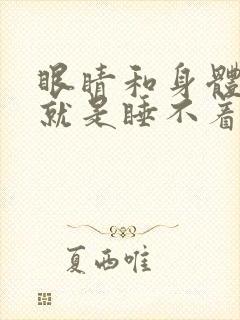 眼睛和身體
就是睡不着
夏西唯